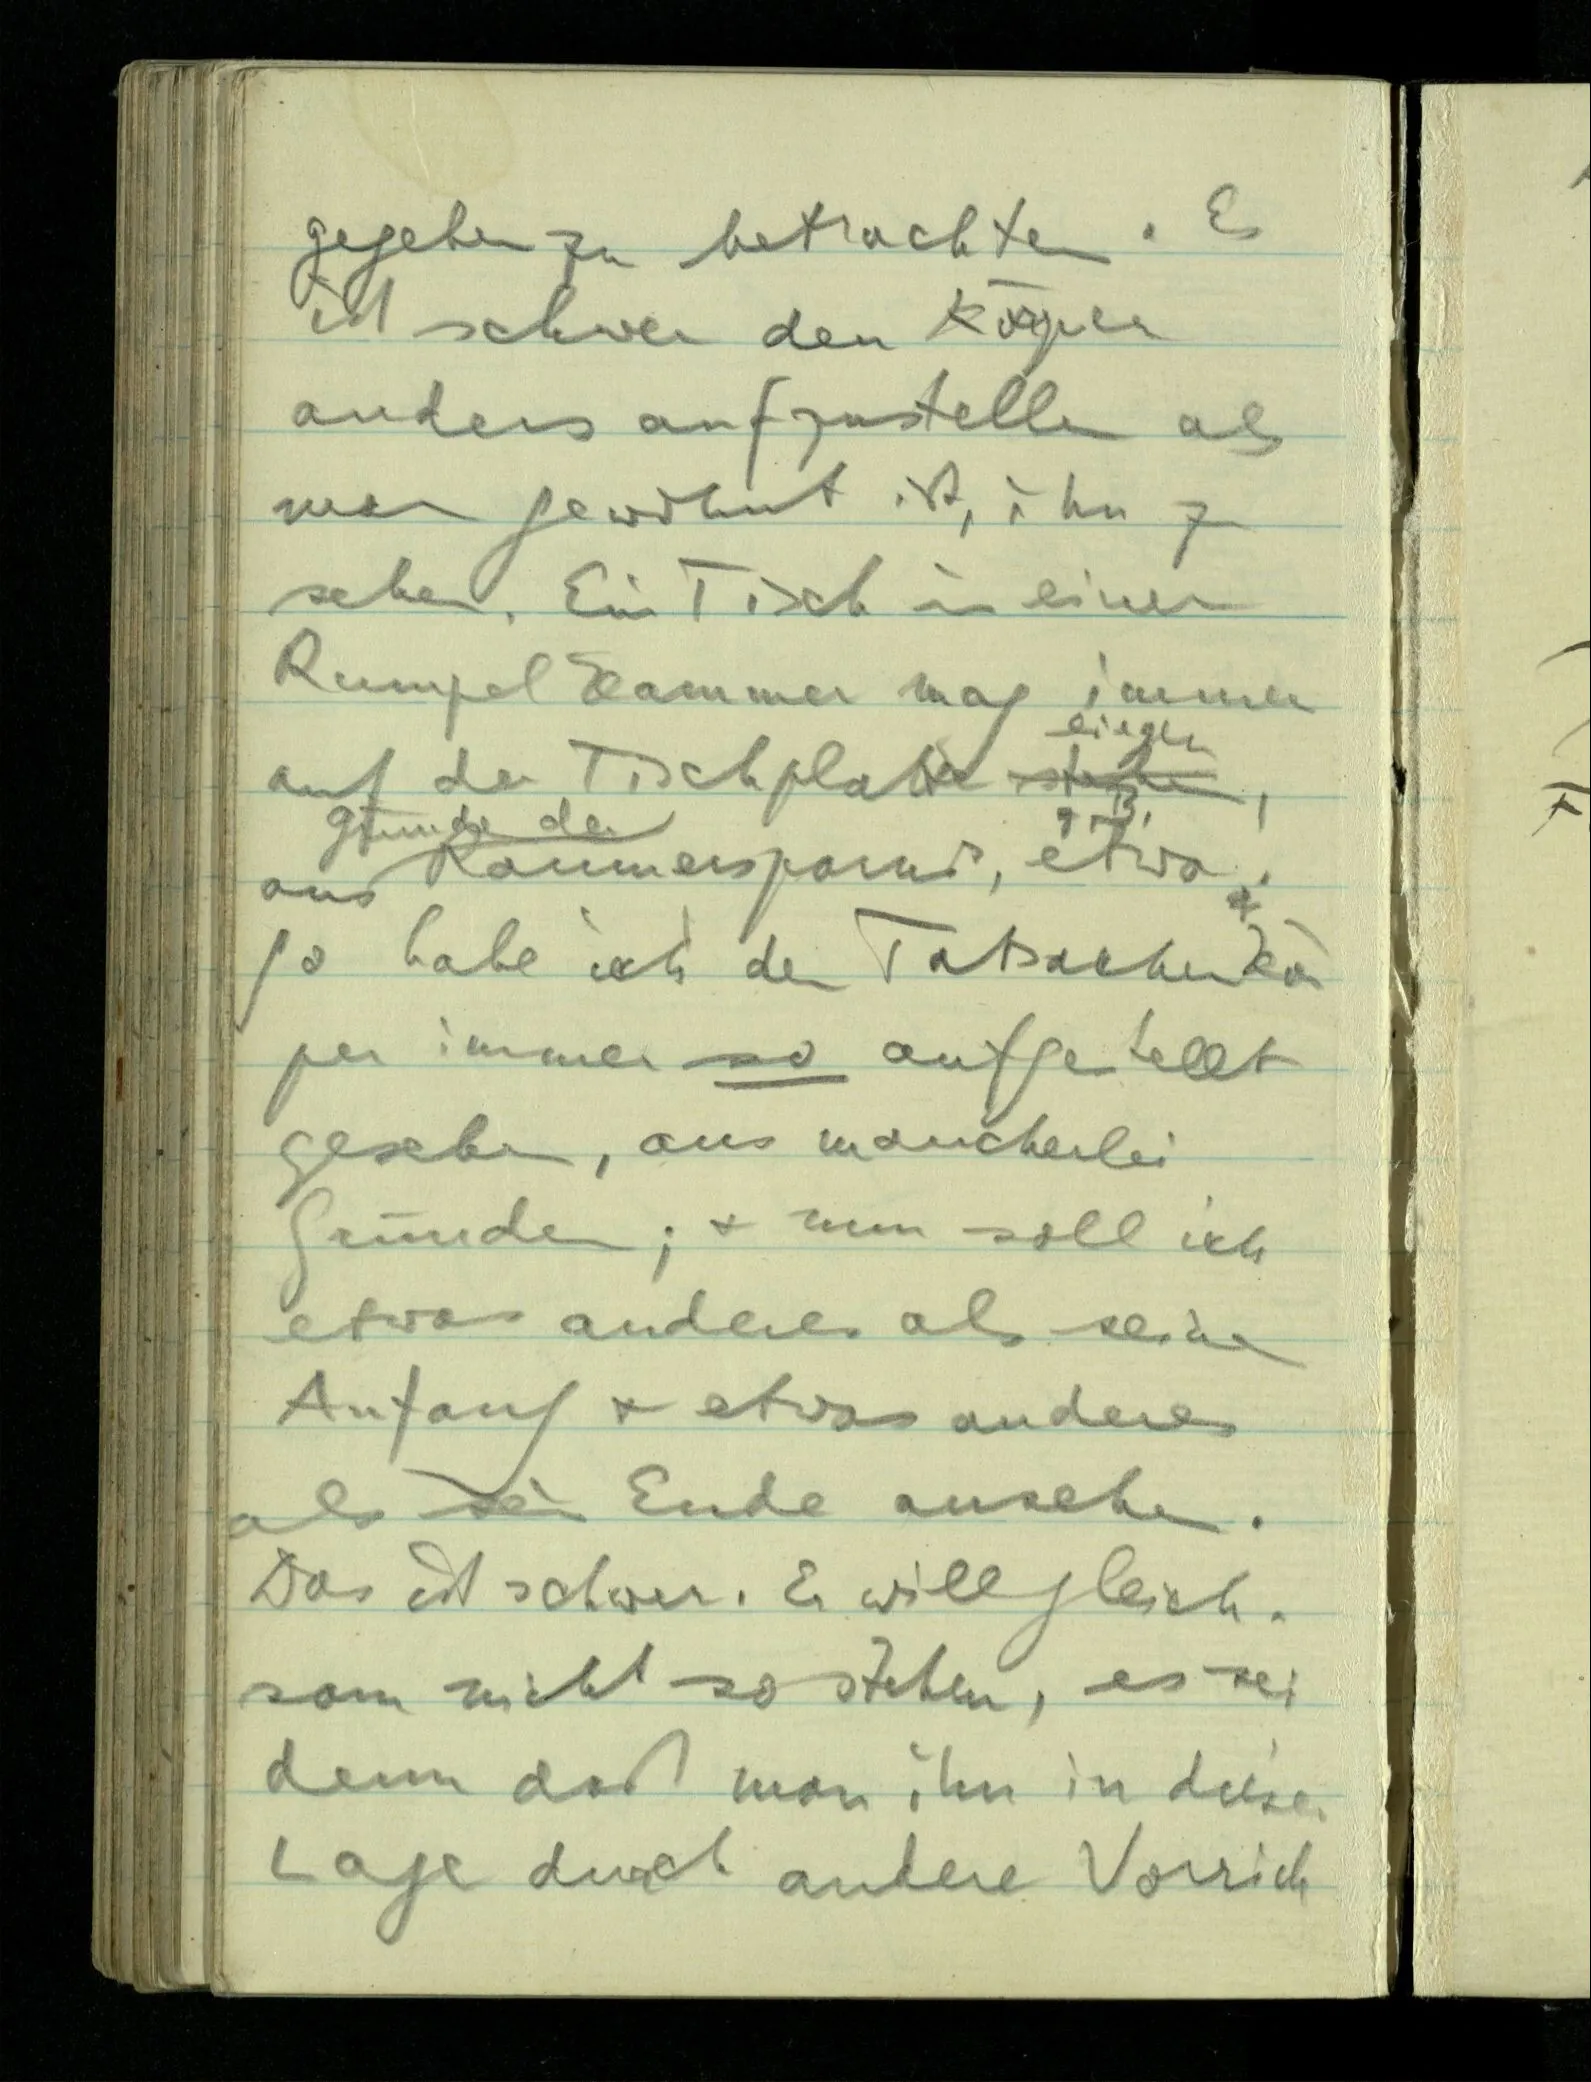 gegeben zu betrachten. Es
ist schwer den Körper
anders aufzustellen als
man gewöhnt ist, ihn zu
sehen. Ein Tisch in einer
Rumpelkammer mag immer
liegen
auf der Tischplatte stehen,
gründe der z.B.
aus Raumersparnis, etwa.
So habe ich den Tatsachenkör
per immer so aufgestellt
gesehen, aus mancherlei
Gründen; & nun soll ich
etwas anderes als seinen
Anfang & etwas anderes
als sein Ende ansehen.
Das ist schwer. Er will gleich-
sam nicht so stehen, es sei
denn daß man ihn in dieser
Lage durch andere Vorrich